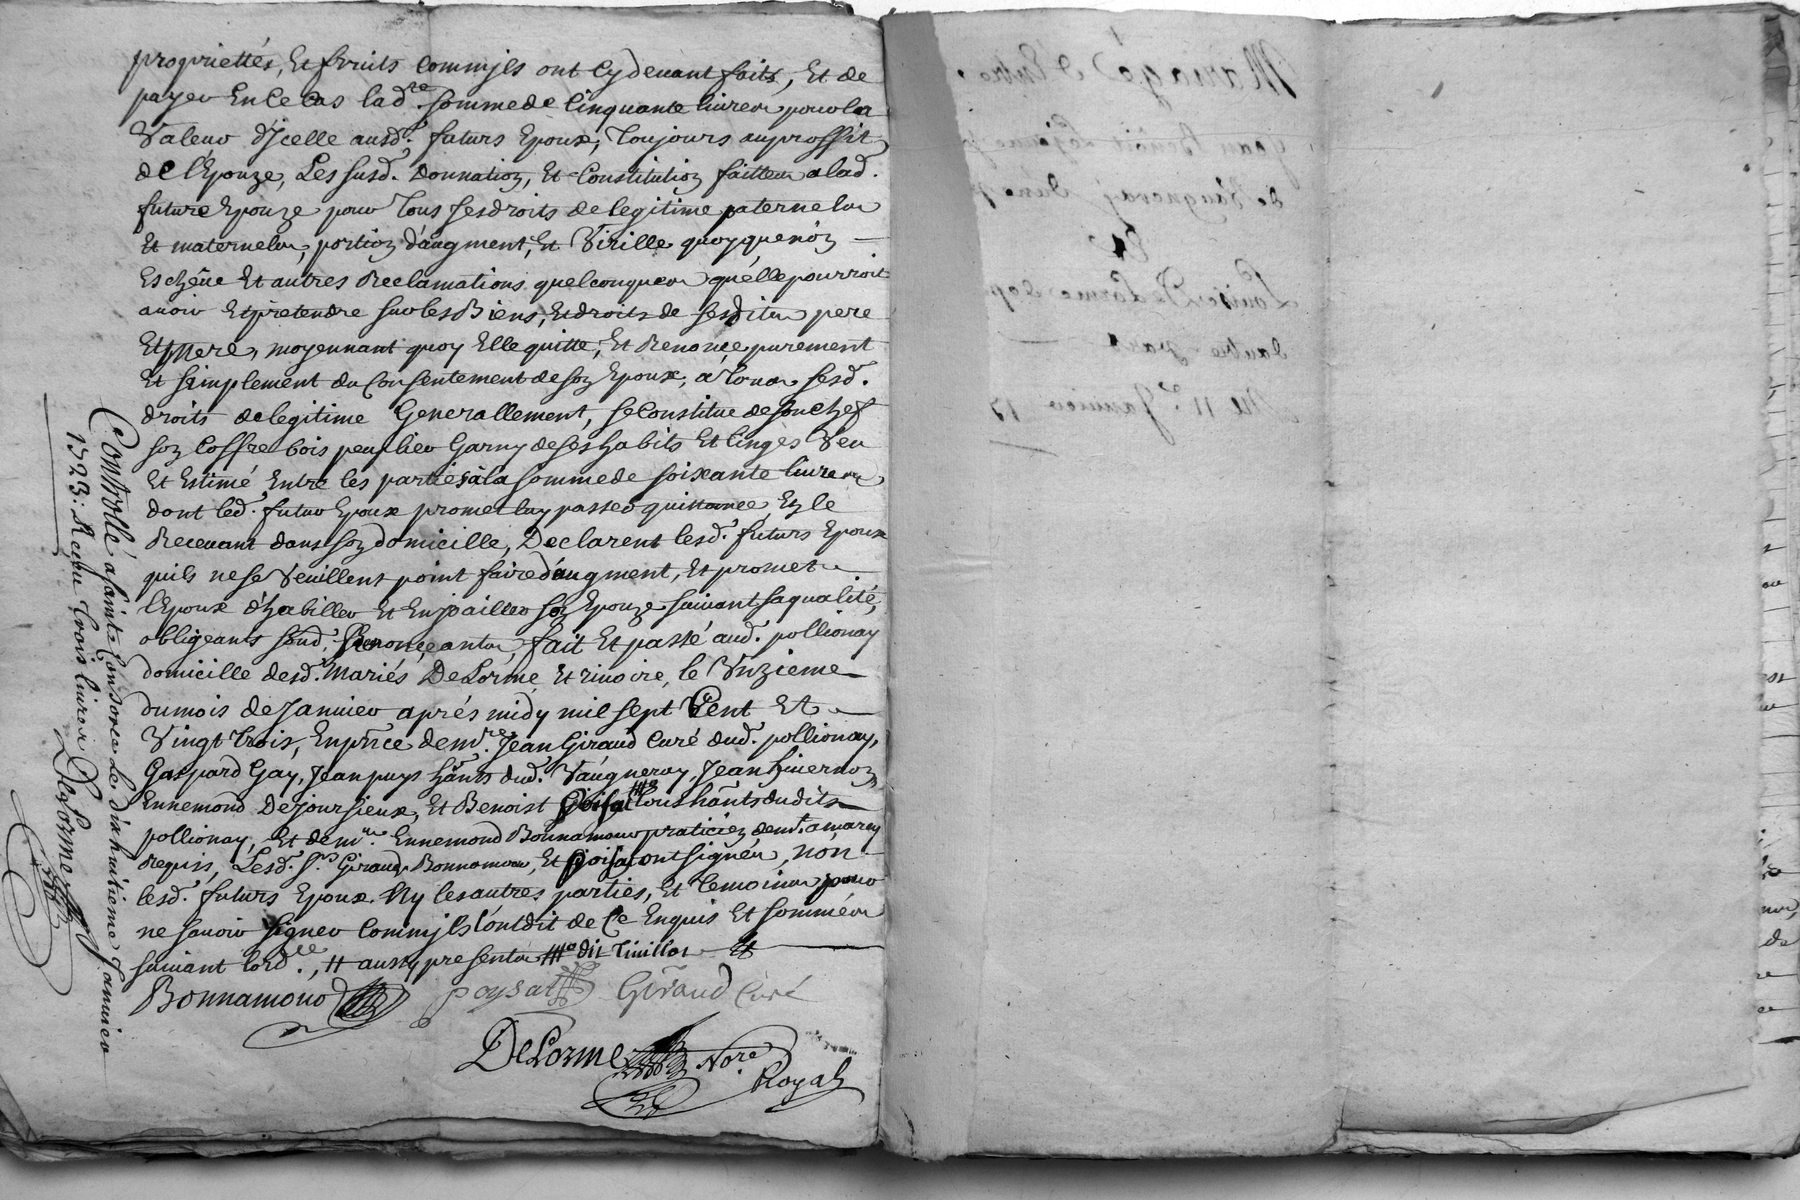 propriettés, Et fruits comm'jls ont Cy devant faits, Et de
payer En Ce Cas lad.te somme de Cinquante livres pour la
Valeur d'Jcelle ausd. futurs Epoux, Toujours au proffit
de l'Epouze, Les susd. donnation, Et Constitution faittes a lad.
future Epouze pour Tous ses droits de legitime paternels
Et maternels, portion d'augment, Et Virille quoyque non
Eschêue Et autres Reclamations quelconques qu'elle pourroit
avoir Et pretendre sur les Biens, Et droits de sesdits pere
Et Mere, moyennant quoy Elle quitte, Et Renonçe purement
Et simplement du Consentement de son Epoux, à Tous sesd.
droits de legitime Generallement, se Constitue de son chef
son Coffre bois peuplier Garny de ses habits Et linges Veu
Et Estimé Entre les parties à la somme de soixante livres
dont led. futur Epoux promet luy passer quittance En le
Recevant dans son domicille, Declarent lesd. futurs Epoux
quils ne se Veuillent point faire d'augment, Et promet
l'Epoux d'habiller Et Enjoailler son Epouze suivant sa qualité,
obligeants sond. Renonçants, fait Et passé aud. pollionay
domicille desd. Mariés DeLorme Et rivoire, le Unzieme
du mois de Janvier aprés midy mil sept Cent Et
Vingt trois, En p'nce de m.re Jean Giraud Curé dud. pollionay,
Gaspard Gay, Jean puys h'ants dud. Vaugneray, Jean
Ennemond Dejoursieux, Et Benoist tous h'ants dudit
pollionay, Et de m. Ennemond Bonnamour praticien
requis, Lesd. s.rs Giraud, Bonnamour, Et ont signéz, non
lesd. futurs Epoux Ny les autres parties, Et temoins pour
ne savoir signer Comm'jls l'ont dit de Ce Enquis Et sommés
suivant lord.ce, # aussy presents #
Bonnamour
poysat
Giraud Curé
DeLorme No.re
Royal
Controllé a sainte Consorce Le dixhuitieme Janvier
1723. Receu Trois livres
DeLorme
Mariage d'Entre
Jean Benoit
de Vaugneray d'une p
Et
Louise DeLorme
dautre part
Du 11.e Janvier 17